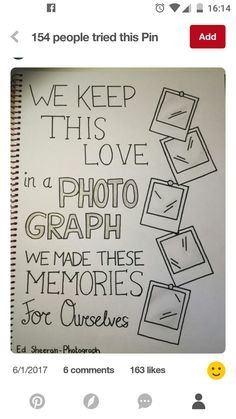 16:14
154 people tried this Pin
Add
WE KEEP
THIS
LOVE
in a PHOTO
GRAPH
WE MADE THESE
MEMORIES
For Ourselves
Ed Sheeran-Photograph
6/1/2017 6 comments 163 likes